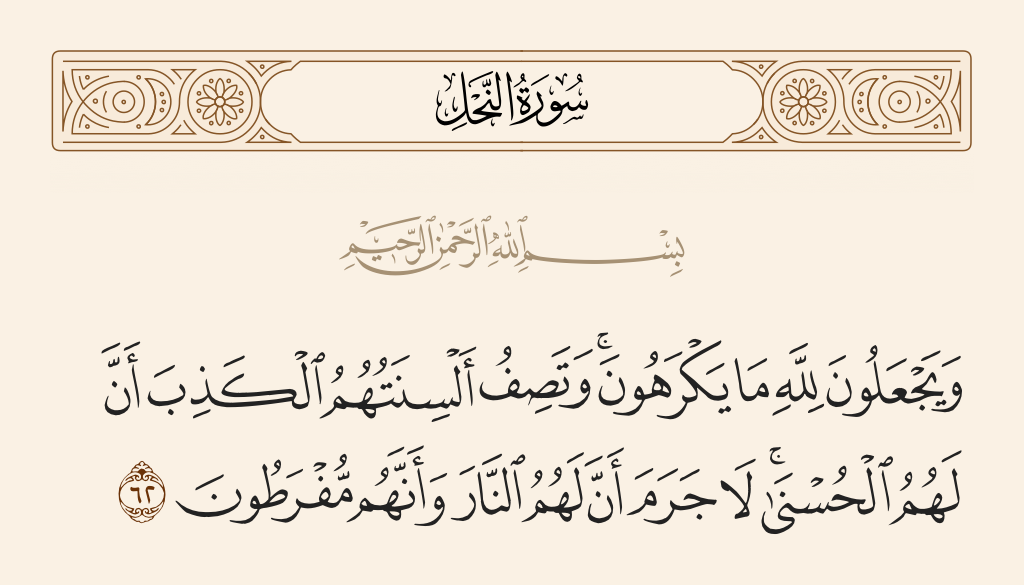 سُورَةُ النَّحْلِ
بِسْمِ ٱللَّهِ ٱلرَّحْمَٰنِ ٱلرَّحِيمِ
وَيَجْعَلُونَ لِلَّهِ مَا يَكْرَهُونَۚ وَتَصِفُ أَلْسِنَتُهُمُ ٱلْكَذِبَ أَنَّ
لَهُمُ ٱلْحُسْنَىٰۚ لَا جَرَمَ أَنَّ لَهُمُ ٱلنَّارَ وَأَنَّهُم مُّفْرَطُونَ ٦٢